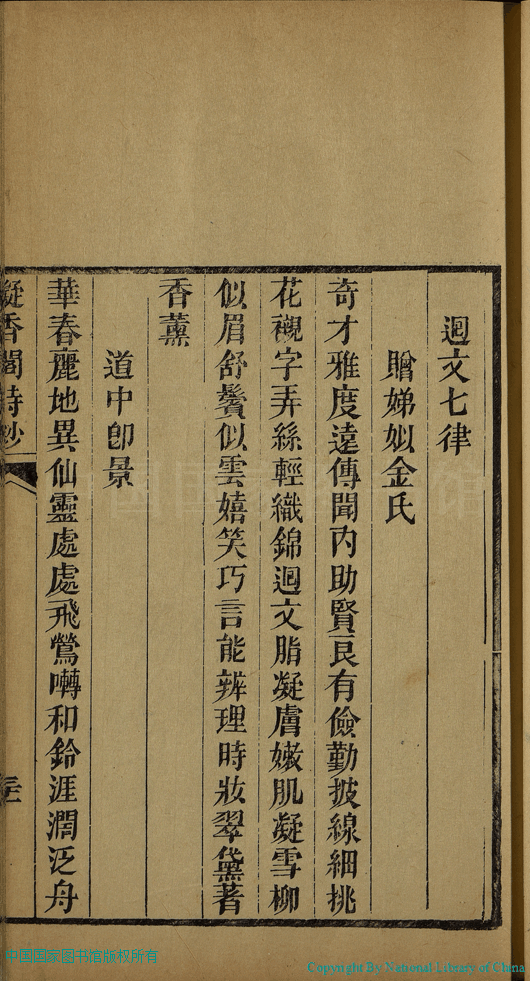 迴文七律
贈娣姒金氏
奇才雅度遠傳聞內助賢良有儉勤披線細挑
花襯字弄絲輕織錦迴文脂凝膚嫩肌凝雪柳
似眉舒鬢似雲嬉笑巧言能辨理時妝翠黛著
香薰
道中卽景
華春麗地異仙靈處處飛鶯囀和鈴涯濶泛舟
凝香閣詩鈔
中国国家图书馆版权所有
Copyright By National Library of China